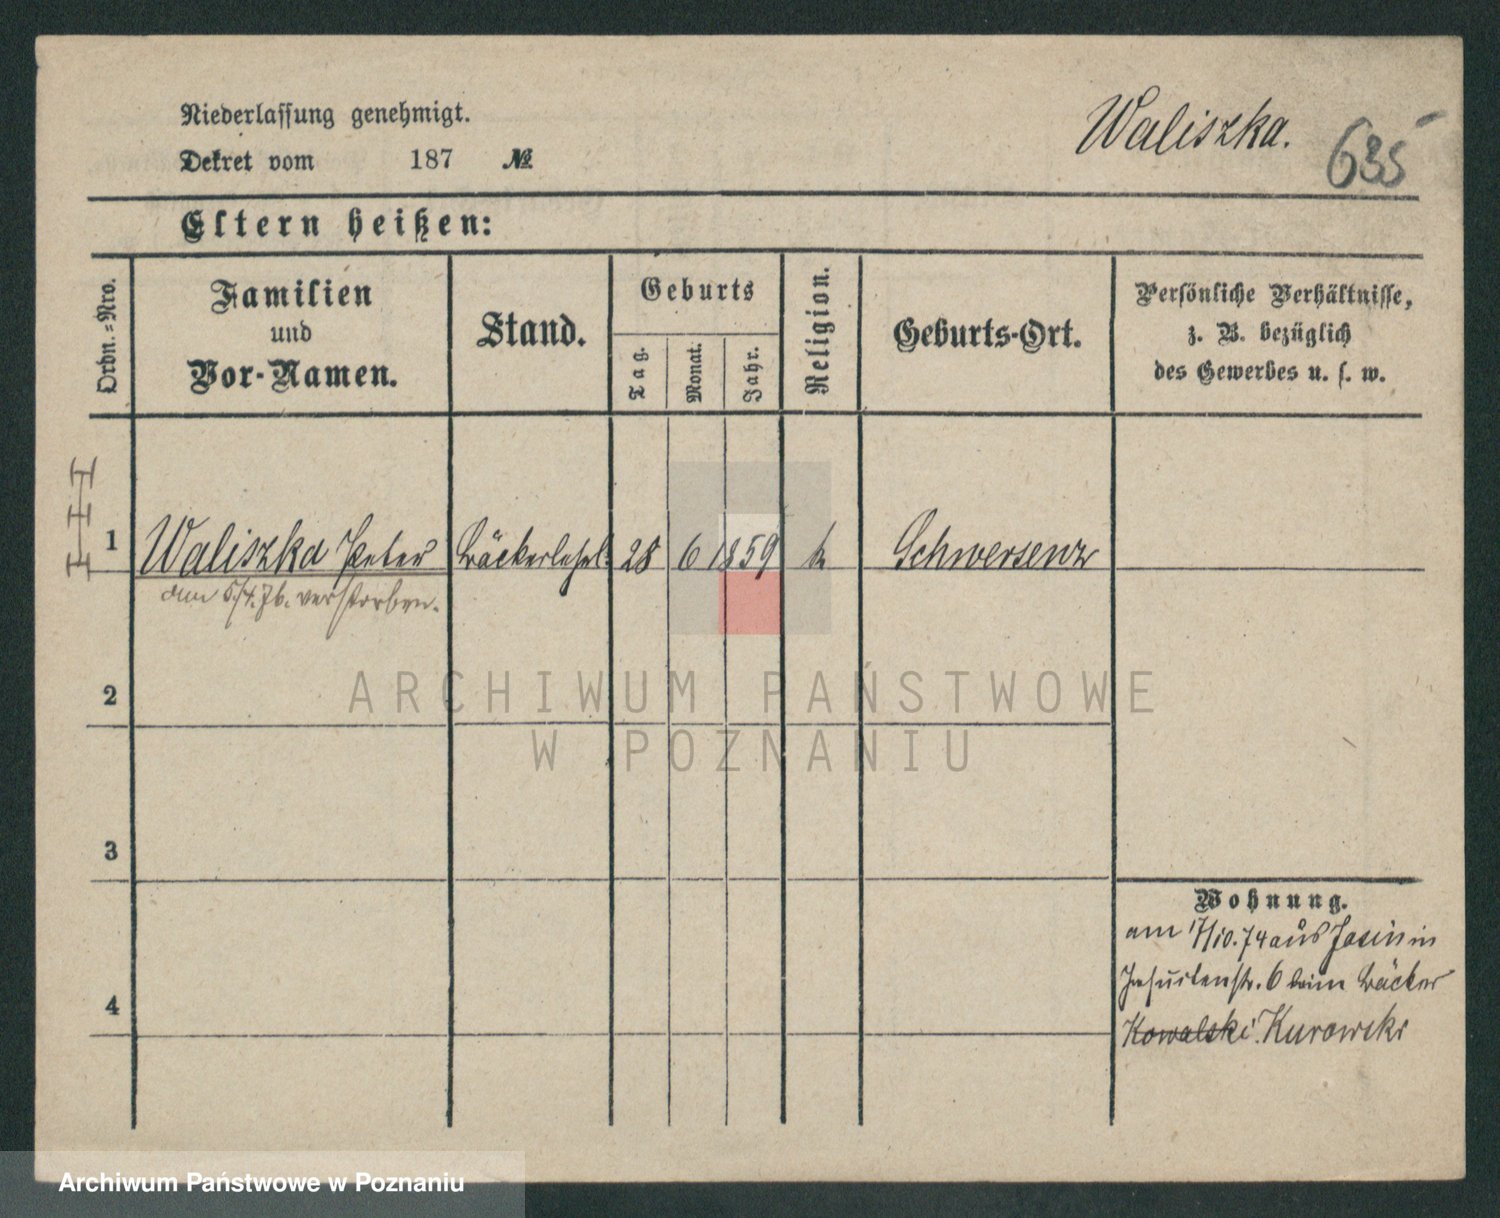 Niederlassung genehmigt.
Dekret vom 187 №
Waliszka.
635
Eltern heißen:
Ordn.=Nro.
Familien
und
Vor-Namen.
Stand.
Geburts
Tag.
Monat.
Jahr.
Religion.
Geburts-Ort.
Persönliche Verhältnisse,
z. B. bezüglich
des Gewerbes u. s. w.
1 Waliszka Peter Bäckerlehrl. 28 6 1859 k Schwersenz
am 5/4.76. verstorben.
2
3
4
Wohnung.
am 17/10.74 aus Jasin in
Jesuitenstr. 6 beim Bäcker
Kowalski. Kurowski
ARCHIWUM PAŃSTWOWE
W POZNANIU
Archiwum Państwowe w Poznaniu